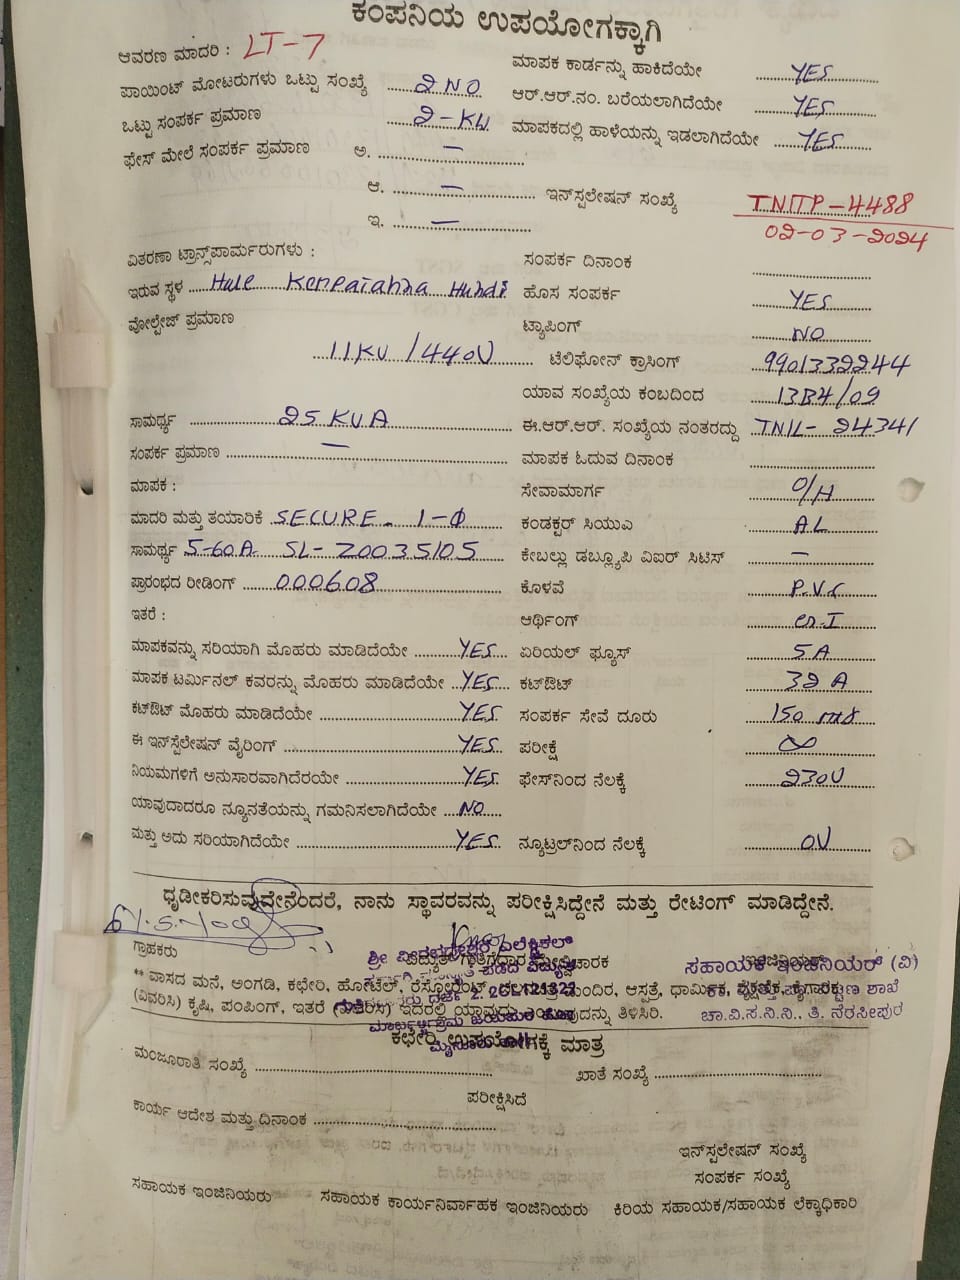 ಕಂಪನಿಯ ಉಪಯೋಗಕ್ಕಾಗಿ
ಆವರಣ ಮಾದರಿ : LT-7 ಮಾಪಕ ಕಾರ್ಡನ್ನು ಹಾಕಿದೆಯೇ YES
ಪಾಯಿಂಟ್ ಮೋಟರುಗಳು ಒಟ್ಟು ಸಂಖ್ಯೆ 2 NO ಆರ್.ಆರ್.ನಂ. ಬರೆಯಲಾಗಿದೆಯೇ YES
ಒಟ್ಟು ಸಂಪರ್ಕ ಪ್ರಮಾಣ 2-KW ಮಾಪಕದಲ್ಲಿ ಹಾಳೆಯನ್ನು ಇಡಲಾಗಿದೆಯೇ YES
ಫೇಸ್ ಮೇಲೆ ಸಂಪರ್ಕ ಪ್ರಮಾಣ ಅ. —
ಆ. — ಇನ್‌ಸ್ಪಲೇಷನ್ ಸಂಖ್ಯೆ TNTP-4488
ಇ. — 02-03-2024
ವಿತರಣಾ ಟ್ರಾನ್ಸ್‌ಪಾರ್ಮರುಗಳು : ಸಂಪರ್ಕ ದಿನಾಂಕ
ಇರುವ ಸ್ಥಳ Hale Kempaiahna Hundi ಹೊಸ ಸಂಪರ್ಕ YES
ವೋಲ್ಟೇಜ್ ಪ್ರಮಾಣ ಟ್ಯಾಪಿಂಗ್ NO
11KV/440V ಟೆಲಿಫೋನ್ ಕ್ರಾಸಿಂಗ್ 9901332244
ಯಾವ ಸಂಖ್ಯೆಯ ಕಂಬದಿಂದ 13B4/09
ಸಾಮರ್ಥ್ಯ 25 KVA ಈ.ಆರ್.ಆರ್. ಸಂಖ್ಯೆಯ ನಂತರದ್ದು TNIL-24341
ಸಂಪರ್ಕ ಪ್ರಮಾಣ — ಮಾಪಕ ಓದುವ ದಿನಾಂಕ
ಮಾಪಕ : ಸೇವಾಮಾರ್ಗ O/H
ಮಾದರಿ ಮತ್ತು ತಯಾರಿಕೆ SECURE. 1-Φ ಕಂಡಕ್ಟರ್ ಸಿಯುಎ AL
ಸಾಮರ್ಥ್ಯ 5-60A SL-20035105 ಕೇಬಲ್ಲು ಡಬ್ಲ್ಯೂಪಿ ವಿಐರ್ ಸಿಟಿಸ್ —
ಪ್ರಾರಂಭದ ರೀಡಿಂಗ್ 000608 ಕೊಳವೆ P.V.C
ಇತರೆ : ಆರ್ಥಿಂಗ್ G.I
ಮಾಪಕವನ್ನು ಸರಿಯಾಗಿ ಮೊಹರು ಮಾಡಿದೆಯೇ YES ಏರಿಯಲ್ ಫ್ಯೂಸ್ 5A
ಮಾಪಕ ಟರ್ಮಿನಲ್ ಕವರನ್ನು ಮೊಹರು ಮಾಡಿದೆಯೇ YES ಕಟ್‌ಔಟ್ 32 A
ಕಟ್‌ಔಟ್ ಮೊಹರು ಮಾಡಿದೆಯೇ YES ಸಂಪರ್ಕ ಸೇವೆ ದೂರು 150 mts
ಈ ಇನ್‌ಸ್ಟಲೇಷನ್ ವೈರಿಂಗ್ YES ಪರೀಕ್ಷೆ ∞
ನಿಯಮಗಳಿಗೆ ಅನುಸಾರವಾಗಿದೆರಯೇ YES ಫೇಸ್‌ನಿಂದ ನೆಲಕ್ಕೆ 230V
ಯಾವುದಾದರೂ ನ್ಯೂನತೆಯನ್ನು ಗಮನಿಸಲಾಗಿದೆಯೇ NO
ಮತ್ತು ಅದು ಸರಿಯಾಗಿದೆಯೇ YES ನ್ಯೂಟ್ರಲ್‌ನಿಂದ ನೆಲಕ್ಕೆ 0V
ಧೃಡೀಕರಿಸುವುವೇನೆಂದರೆ, ನಾನು ಸ್ಥಾವರವನ್ನು ಪರೀಕ್ಷಿಸಿದ್ದೇನೆ ಮತ್ತು ರೇಟಿಂಗ್ ಮಾಡಿದ್ದೇನೆ.
ಗ್ರಾಹಕರು
ಸಹಾಯಕ ಇಂಜಿನಿಯರ್ (ವಿ)
** ವಾಸದ ಮನೆ, ಅಂಗಡಿ, ಕಛೇರಿ, ಹೋಟೆಲ್, ರೆಸ್ಟೋರೆಂಟ್, ಆಸ್ಪತ್ರೆ, ಧಾರ್ಮಿಕ,
(ವಿವರಿಸಿ) ಕೃಷಿ, ಪಂಪಿಂಗ್, ಇತರೆ ಇದರಲ್ಲಿ ತಿಳಿಸಿರಿ. ಚಾ.ವಿ.ಸ.ನಿ.ನಿ., ತಿ. ನರಸೀಪುರ
ಕಛೇರಿ ಉಪಯೋಗಕ್ಕೆ ಮಾತ್ರ
ಮಂಜೂರಾತಿ ಸಂಖ್ಯೆ ಖಾತೆ ಸಂಖ್ಯೆ
ಪರೀಕ್ಷಿಸಿದೆ
ಕಾರ್ಯ ಆದೇಶ ಮತ್ತು ದಿನಾಂಕ
ಇನ್‌ಸ್ಪಲೇಷನ್ ಸಂಖ್ಯೆ
ಸಂಪರ್ಕ ಸಂಖ್ಯೆ
ಸಹಾಯಕ ಇಂಜಿನಿಯರು ಸಹಾಯಕ ಕಾರ್ಯನಿರ್ವಾಹಕ ಇಂಜಿನಿಯರು ಕಿರಿಯ ಸಹಾಯಕ/ಸಹಾಯಕ ಲೆಕ್ಕಾಧಿಕಾರಿ